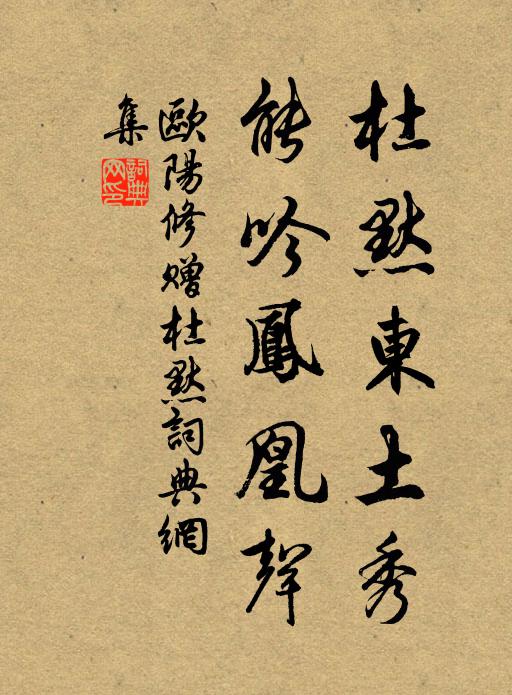 杜默東土秀
能吟鳳凰聲
歐陽修贈杜默詞典網
集
詞典
网印